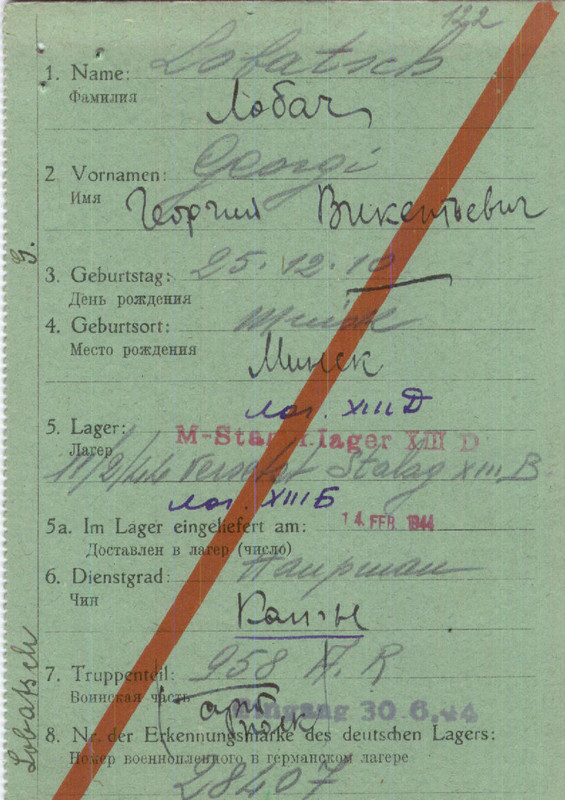 122
1. Name: Lobatsch
Фамилия
Лобач
2. Vornamen: Georgi
Имя
Георгий Викентьевич
3. Geburtstag: 25.12.10
День рождения
4. Geburtsort: Minsk
Место рождения
Минск
лаг. XIII Д
5. Lager: M-Stamm.lager XIII D
Лагер
11/2/44 Versetzt Stalag XIII B
лаг. XIII Б
5a. Im Lager eingeliefert am: 14. FEB. 1944
Доставлен в лагер (число)
6. Dienstgrad: Haupman
Чин
Кап-н
7. Truppenteil: 958 A.R
Воинская часть
(арт
полк)
Eingang 30 6.44
8. Nr. der Erkennungsmarke des deutschen Lagers:
Номер военнопленного в германском лагере
28407
Lobatsch G.